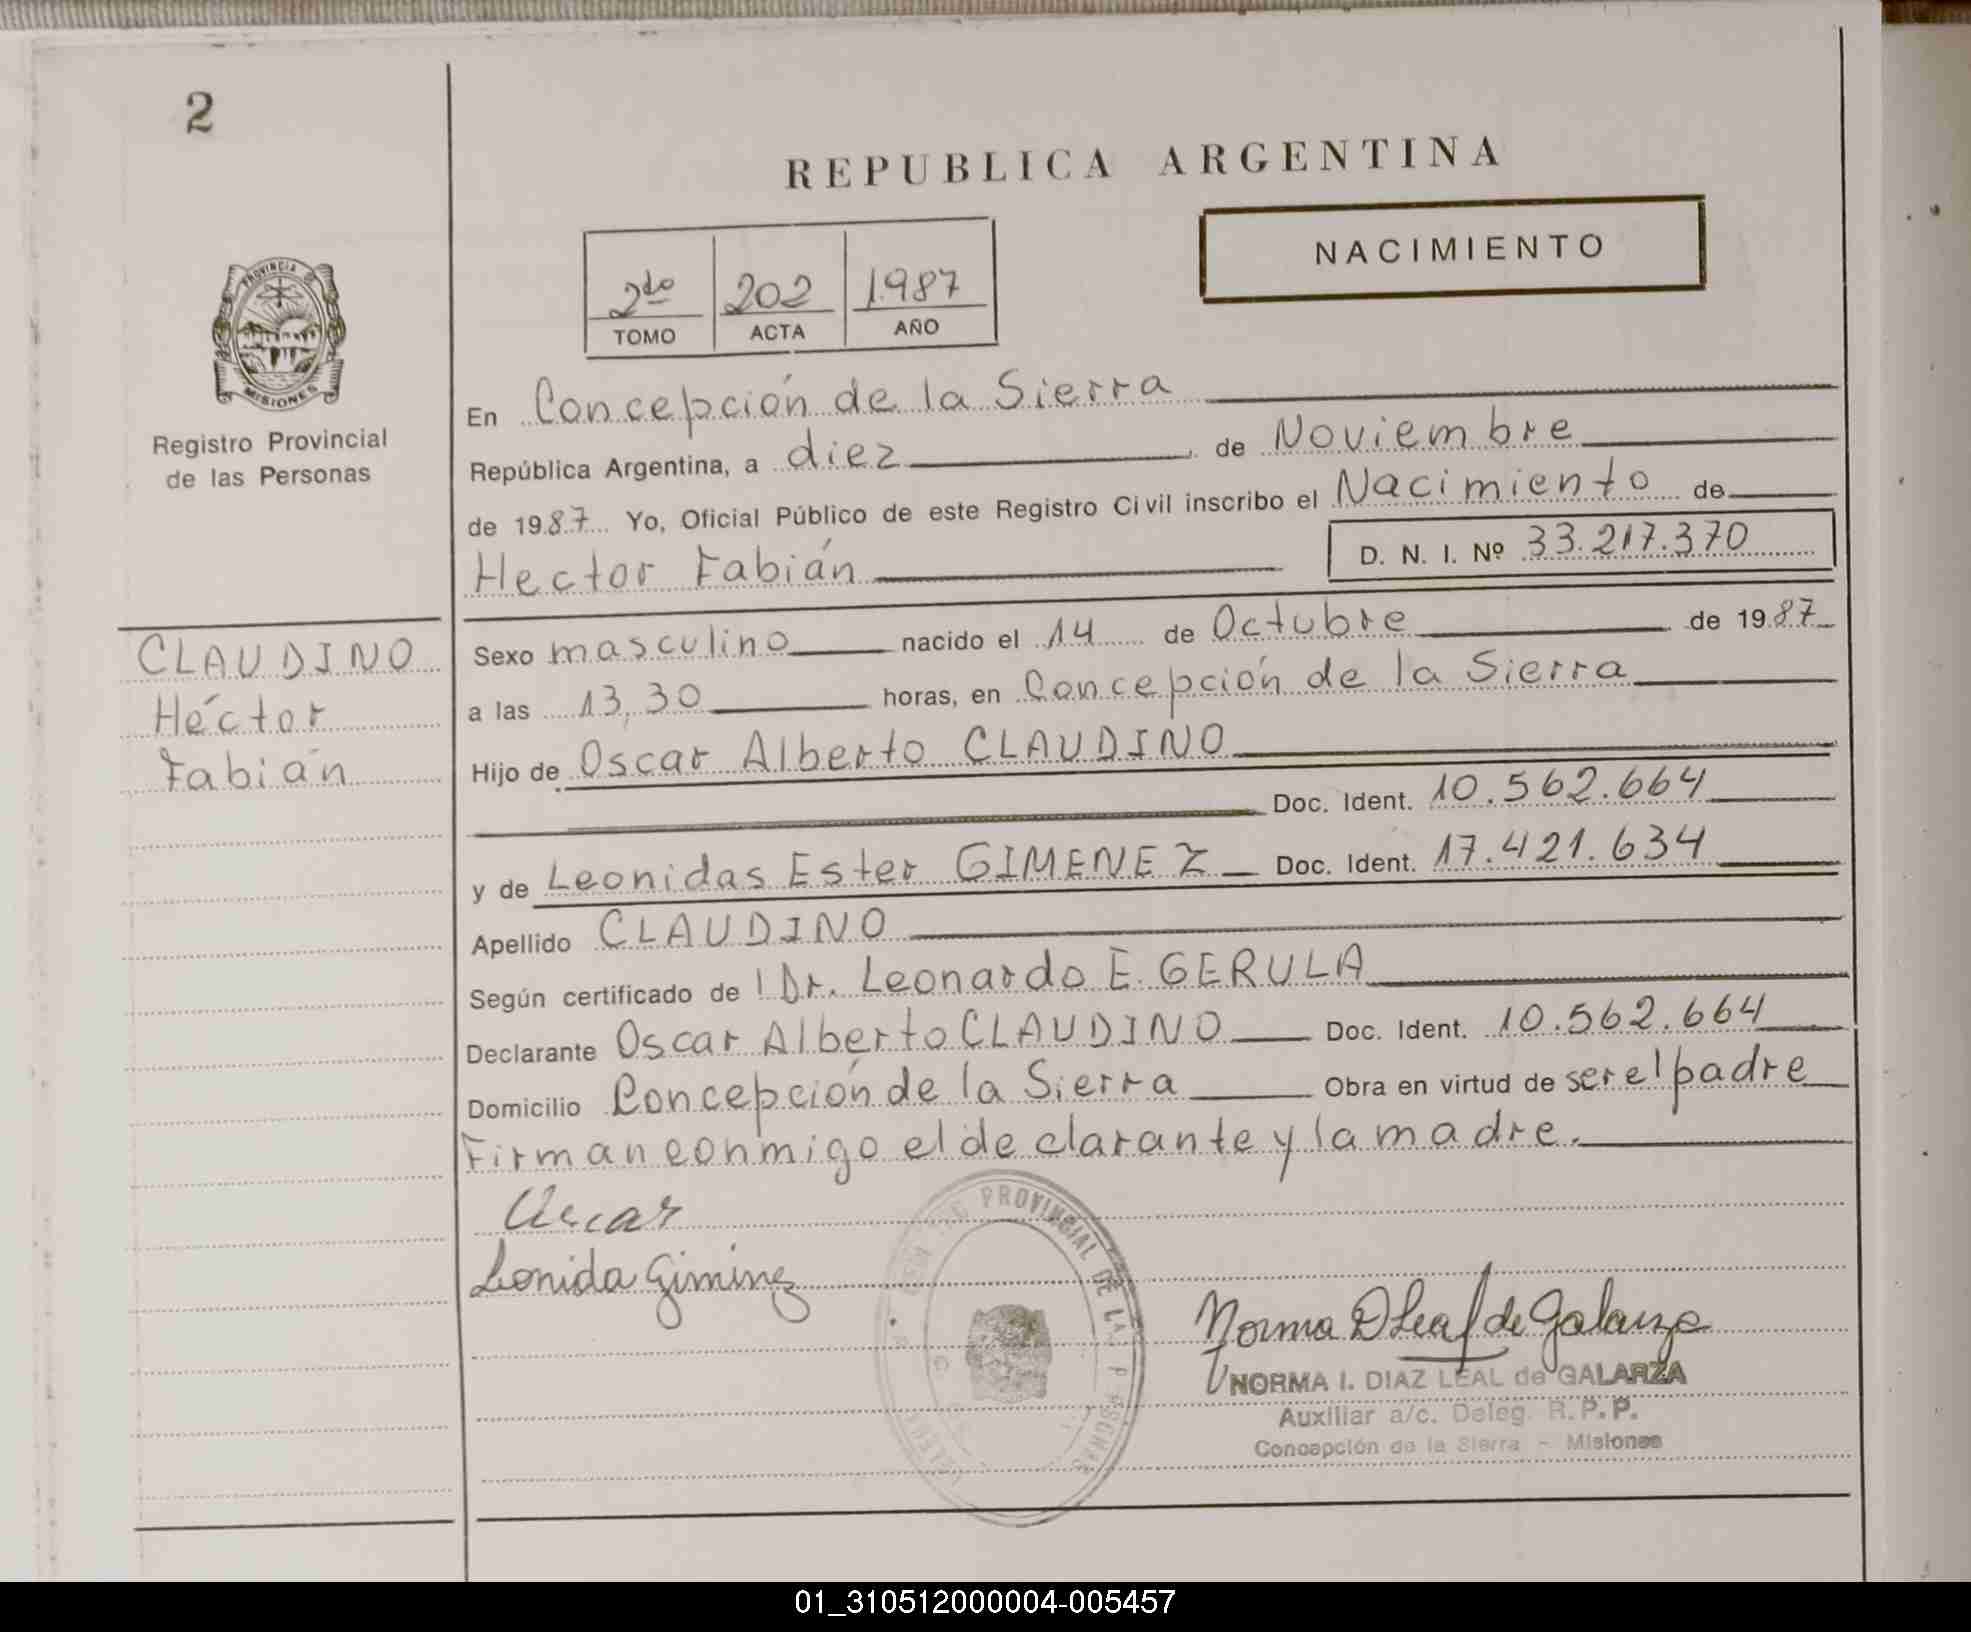 2
REPUBLICA ARGENTINA
NACIMIENTO
2do 202 1.987
TOMO ACTA AÑO
PROVINCIA DE
MISIONES
Registro Provincial
de las Personas
En Concepción de la Sierra
República Argentina, a diez de Noviembre
de 1987 Yo, Oficial Público de este Registro Civil inscribo el Nacimiento de
Hector Fabián D. N. I. Nº 33.217.370
CLAUDINO
Héctor
Fabián
Sexo masculino nacido el 14 de Octubre de 1987
a las 13,30 horas, en Concepción de la Sierra
Hijo de Oscar Alberto CLAUDINO
Doc. Ident. 10.562.664
y de Leonidas Ester GIMENEZ Doc. Ident. 17.421.634
Apellido CLAUDINO
Según certificado de l Dr. Leonardo E. GERULA
Declarante Oscar Alberto CLAUDINO Doc. Ident. 10.562.664
Domicilio Concepción de la Sierra Obra en virtud de ser el padre
Firman conmigo el declarante y la madre.
Lonida Giminez
PROVINCIAL DE LA
Norma D Leal de Galarza
NORMA I. DIAZ LEAL de GALARZA
Auxiliar a/c. Deleg. R.P.P.
Concepción de la Sierra - Misiones
01_310512000004-005457